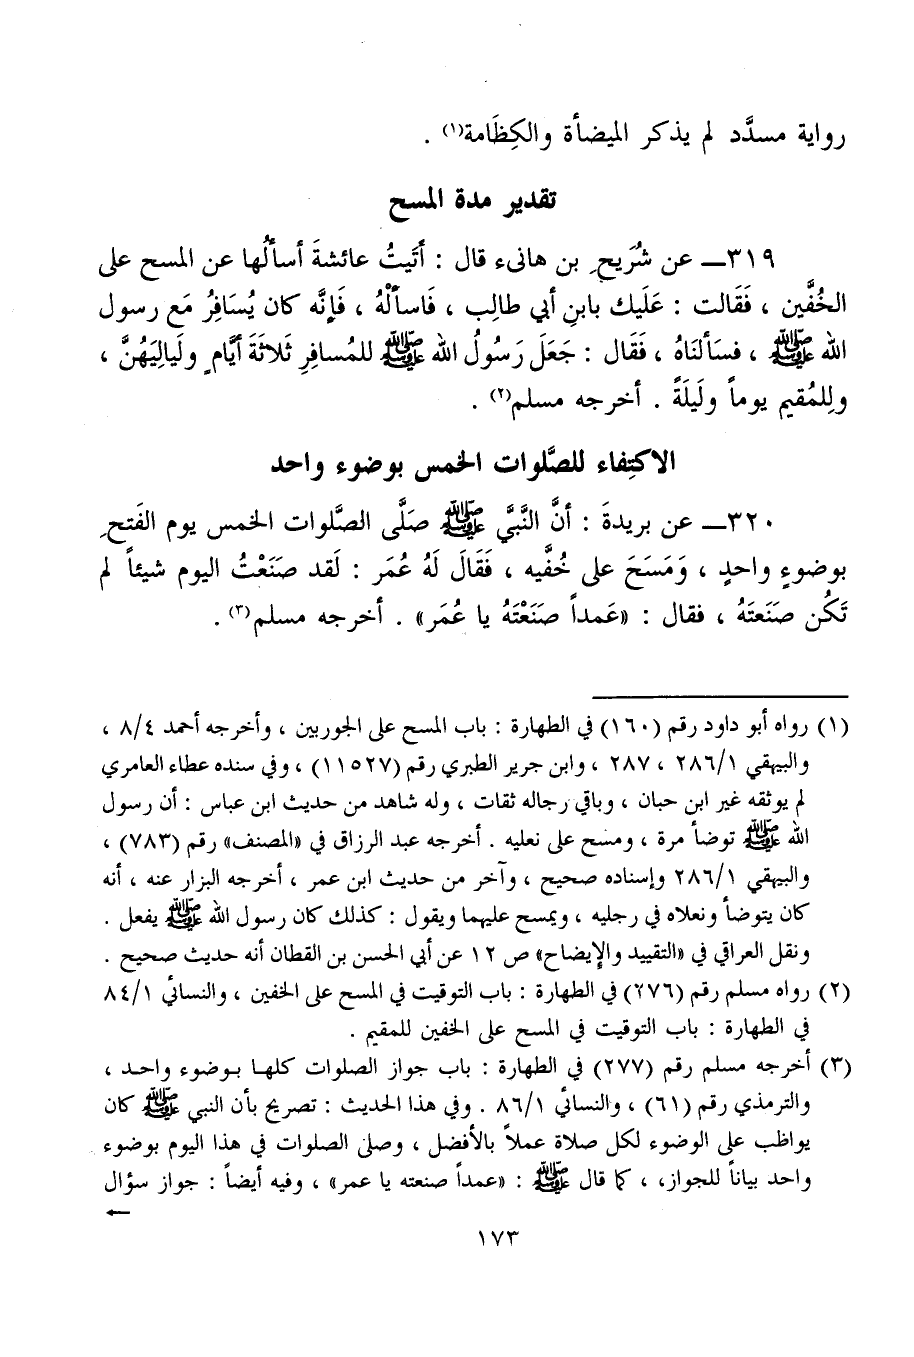 رواية مسدَّد لم يذكر الميضأة والكِظَامة(١) .
تقدير مدة المسح
٣١٩ــ عن شُرَيحِ بن هانىء قال : أَتَيتُ عائشةَ أسألُها عن المسح على
الخُفَّين ، فَقَالت : عَلَيك بابنِ أبي طالِب ، فَاسألْهُ ، فَإنَّه كان يُسَافِرُ مَع رسول
الله ﷺ ، فسَألنَاهُ ، فَقَال : جَعَلَ رَسُولُ الله ﷺ للمُسافرِ ثَلاثَةَ أيَّامٍ ولَيالِيَهُنَّ ،
ولِلمُقيم يوماً ولَيلَةً . أخرجه مسلم(٢) .
الاكتِفاء للصَّلوات الخمس بوضوء واحد
٣٢٠ــ عن بريدةَ : أنَّ النَّبيَّ ﷺ صَلَّى الصَّلوات الخمس يوم الفَتحِ
بوضوءٍ واحدٍ ، وَمَسَحَ على خُفَّيه ، فَقَالَ لَهُ عُمَر : لَقد صنَعْتُ اليوم شيئاً لم
تَكُن صنَعتَهُ ، فقال : «عَمداً صنَعْتَهُ يا عُمَر» . أخرجه مسلم(٣) .
(١) رواه أبو داود رقم (١٦٠) في الطهارة : باب المسح على الجوربين ، وأخرجه أحمد ٨/٤ ،
والبيهقي ٢٨٦/١ ، ٢٨٧ ، وابن جرير الطبري رقم (١١٥٢٧) ، وفي سنده عطاء العامري
لم يوثقه غير ابن حبان ، وباقي رجاله ثقات ، وله شاهد من حديث ابن عباس : أن رسول
الله ﷺ توضأ مرة ، ومسح على نعليه . أخرجه عبد الرزاق في «المصنف» رقم (٧٨٣) ،
والبيهقي ٢٨٦/١ وإسناده صحيح ، وآخر من حديث ابن عمر ، أخرجه البزار عنه ، أنه
كان يتوضأ ونعلاه في رجليه ، ويمسح عليهما ويقول : كذلك كان رسول الله ﷺ يفعل .
ونقل العراقي في «التقييد والإيضاح» ص ١٢ عن أبي الحسن بن القطان أنه حديث صحيح .
(٢) رواه مسلم رقم (٢٧٦) في الطهارة : باب التوقيت في المسح على الخفين ، والنسائي ٨٤/١
في الطهارة : باب التوقيت في المسح على الخفين للمقيم .
(٣) أخرجه مسلم رقم (٢٧٧) في الطهارة : باب جواز الصلوات كلها بوضوء واحد ،
والترمذي رقم (٦١) ، والنسائي ٨٦/١ . وفي هذا الحديث : تصريح بأن النبي ﷺ كان
يواظب على الوضوء لكل صلاة عملاً بالأفضل ، وصلى الصلوات في هذا اليوم بوضوء
واحد بياناً للجواز، ، كما قال ﷺ : «عمداً صنعته يا عمر» ، وفيه أيضاً : جواز سؤال
←
١٧٣